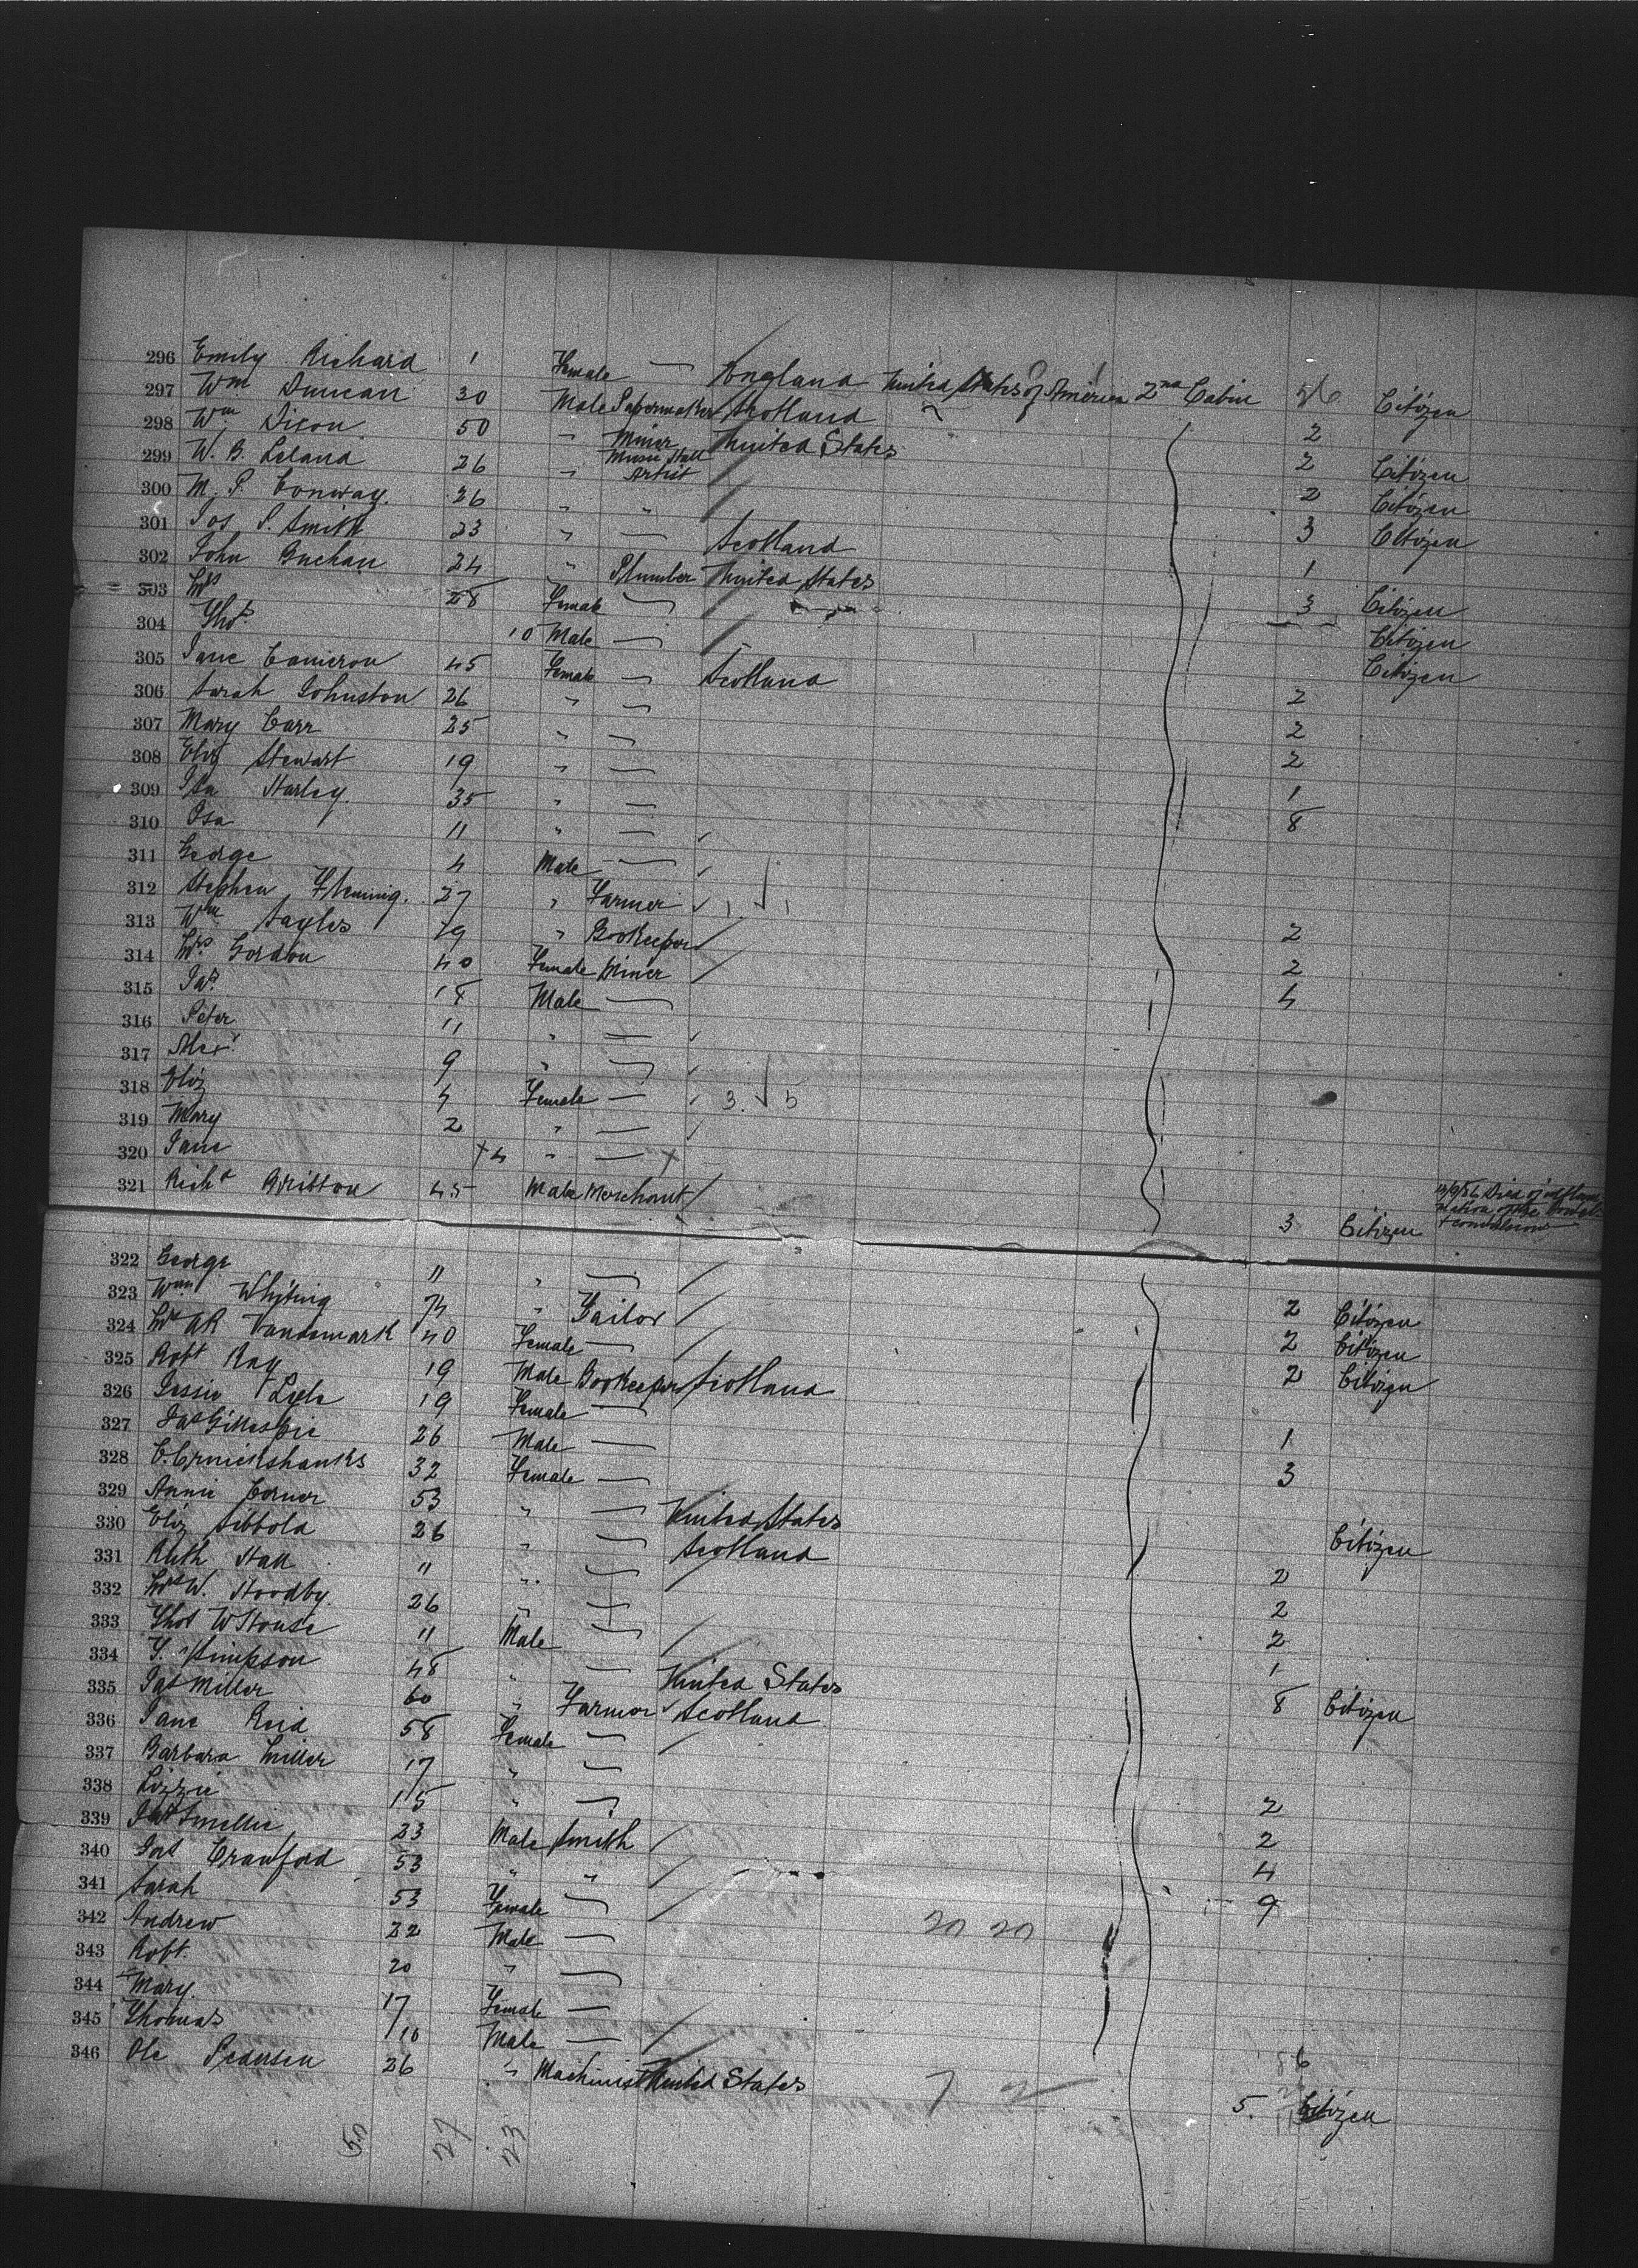 296 Emily Richard 1 Female — England United States of America 2nd Cabin Citizen
297 Wm Duncan 30 Male Papermaker Scotland 2
298 Wm Dixon 50 " Miner United States 2 Citizen
299 W. B. Leland 26 " Music Hall Artist 2 Citizen
300 M. P. Conway. 26 " " 3 Citizen
301 Jos P. Smith 23 " — Scotland 1
302 John Buchan 24 " Plumber United States 3 Citizen
303 Mrs 28 Female — Citizen
304 Thos 10 Male — Citizen
305 Jane Cameron 45 Female — Scotland 2
306 Sarah Johnston 26 " — 2
307 Mary Carr 25 " — 2
308 Eliz Stewart 19 " — 1
309 Isa Harley. 35 " — 8
310 Isa 11 " —
311 George 4 Male —
312 Stephen Fleming. 27 " Farmer 2
313 Wm Sayles 19 " Bookeeper 2
314 Mrs Gordon 40 Female Miner 4
315 Jas. 18 Male —
316 Peter 11 " —
317 Alexr 9 " —
318 Eliz 4 Female — 3. 5
319 Mary 2 " —
320 Jane 4 " —
321 Richd Britton 45 Male Merchant 3 Citizen
322 George 11 " —
323 Wm Whyting 74 " Tailor 2 Citizen
324 Mrs AR Vandemark 40 Female — 2 Citizen
325 Robt Ray 19 Male Bookeeper Scotland 2 Citizen
326 Jessie Lyle 19 Female —
327 Jas Gillespie 26 Male — 1
328 C. Cruickshanks 32 Female — 3
329 Annie Corner 53 " — United States Citizen
330 Eliz Sibbold 26 " — Scotland 2
331 Ruth Hall 11 " — 2
332 Mrs W. Hoodby. 26 " — 2
333 Thos W House 11 Male — 1
334 Y. Simpson 48 " — United States 8 Citizen
335 Jas Miller 60 " Farmer Scotland
336 Jane Reid 58 Female —
337 Barbara Miller 17 " — 2
338 Lizzie 15 " — 2
339 Jas Smellie 23 Male Smith 4
340 Jas Crawford 53 " " 9
341 Sarah 53 Female —
342 Andrew 22 Male — 20 20
343 Robt. 20 " —
344 Mary. 17 Female —
345 Thomas 10 Male —
346 Ole Pedersen 26 " Machinist United States 5. Citizen
27 23